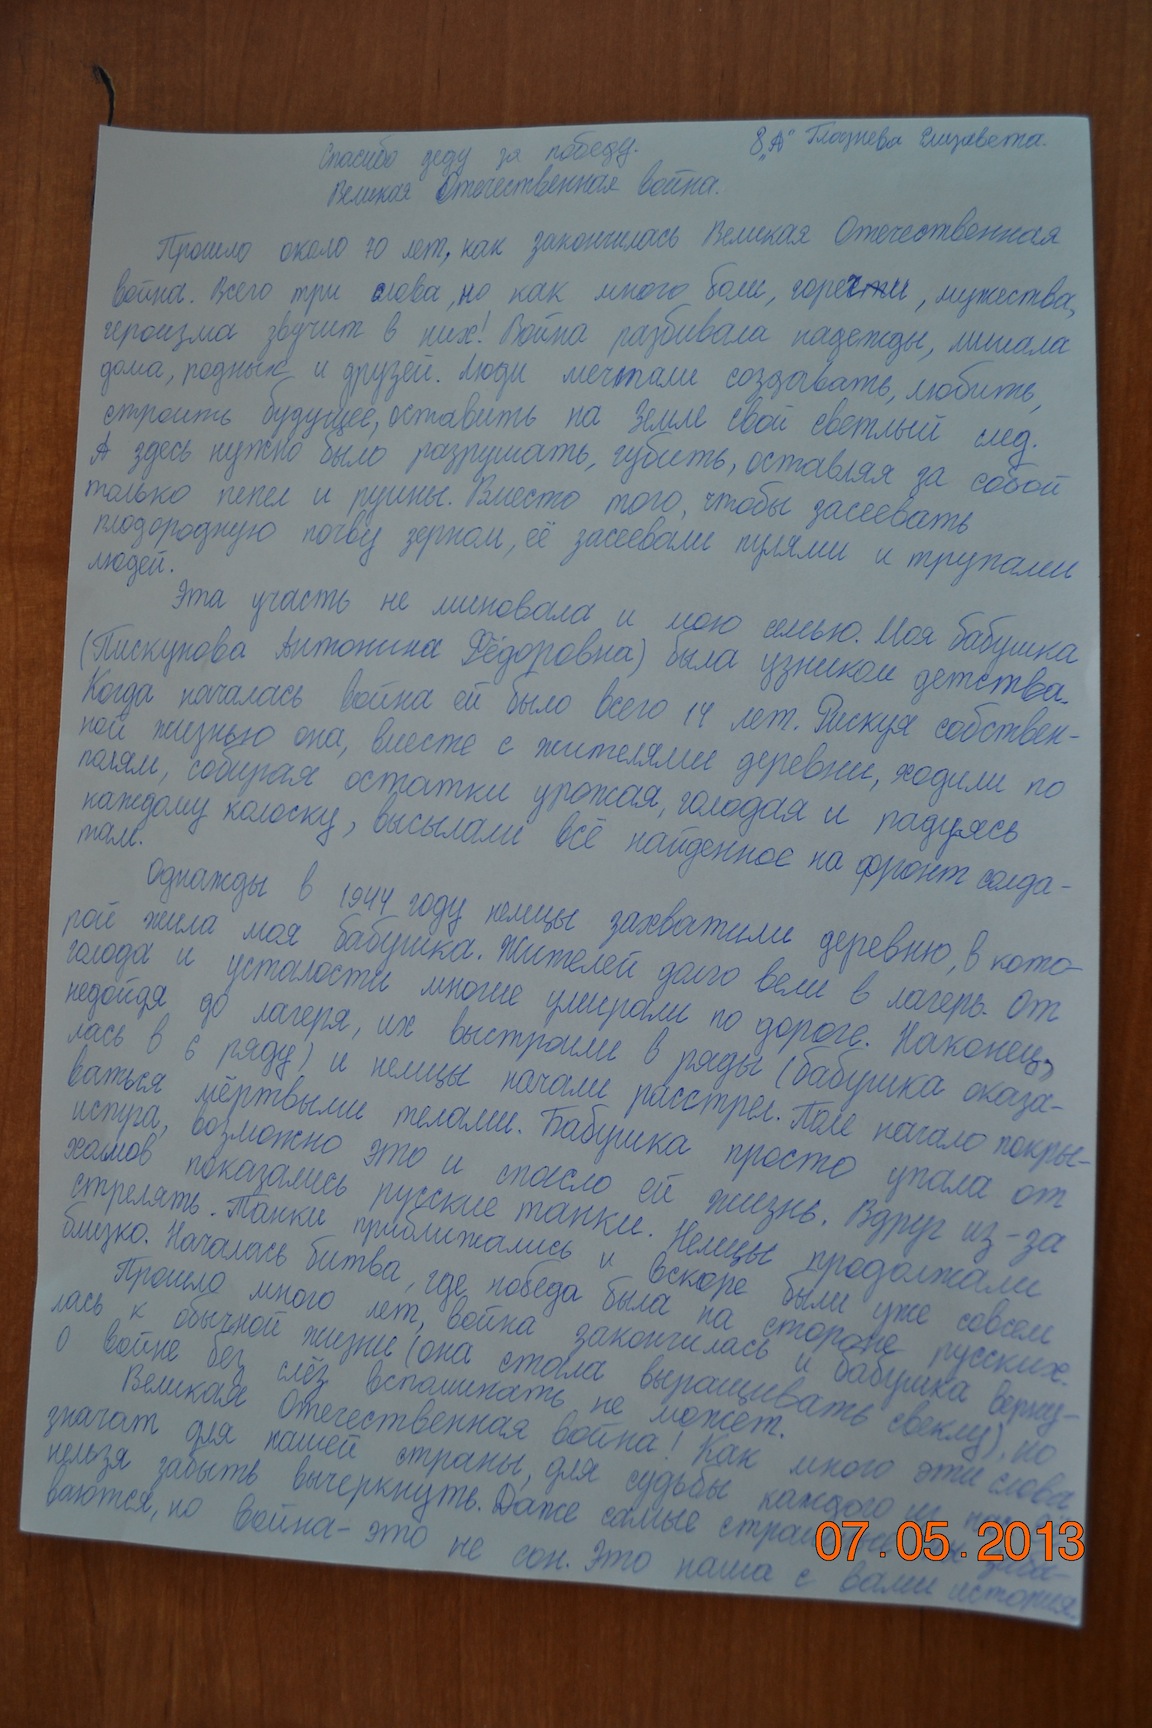 8 „А" Глазнева Елизавета.
Спасибо деду за победу.
Великая Отечественная война.
Прошло около 70 лет, как закончилась Великая Отечественная
война. Всего три слова, но как много боли, горечи, мужества,
героизма звучит в них! Война разбивала надежды, лишала
дома, родных и друзей. Люди мечтали создавать, любить,
строить будущее, оставить на Земле свой светлый след.
А здесь нужно было разрушать, губить, оставляя за собой
только пепел и руины. Вместо того, чтобы засеевать
плодородную почву зерном, её засеевали пулями и трупами
людей.
Эта участь не миновала и мою семью. Моя бабушка
(Пискунова Антонина Фёдоровна) была узником детства.
Когда началась война ей было всего 14 лет. Рискуя собствен-
ной жизнью она, вместе с жителями деревни, ходили по
полям, собирая остатки урожая, голодая и радуясь
каждому колоску, высылали всё найденное на фронт солда-
там.
Однажды в 1944 году немцы захватили деревню, в кото-
рой жила моя бабушка. Жителей долго вели в лагерь. От
голода и усталости многие умирали по дороге. Наконец,
недойдя до лагеря, их выстроили в ряды (бабушка оказа-
лась в 6 ряду) и немцы начали расстрел. Поле начало покры-
ваться мёртвыми телами. Бабушка просто упала от
испуга, возможно это и спасло ей жизнь. Вдруг из-за
холмов показались русские танки. Немцы продолжали
стрелять. Танки приближались и вскоре были уже совсем
близко. Началась битва, где победа была на стороне русских.
Прошло много лет, война закончилась и бабушка верну-
лась к обычной жизни (она стала выращивать свеклу), но
о войне без слёз вспоминать не может.
Великая Отечественная война! Как много эти слова
значат для нашей страны, для судьбы каждого из нас
нельзя забыть вычеркнуть. Даже самые страшные забы-
ваются, но война - это не сон. Это наша с вами история.
07.05.2013